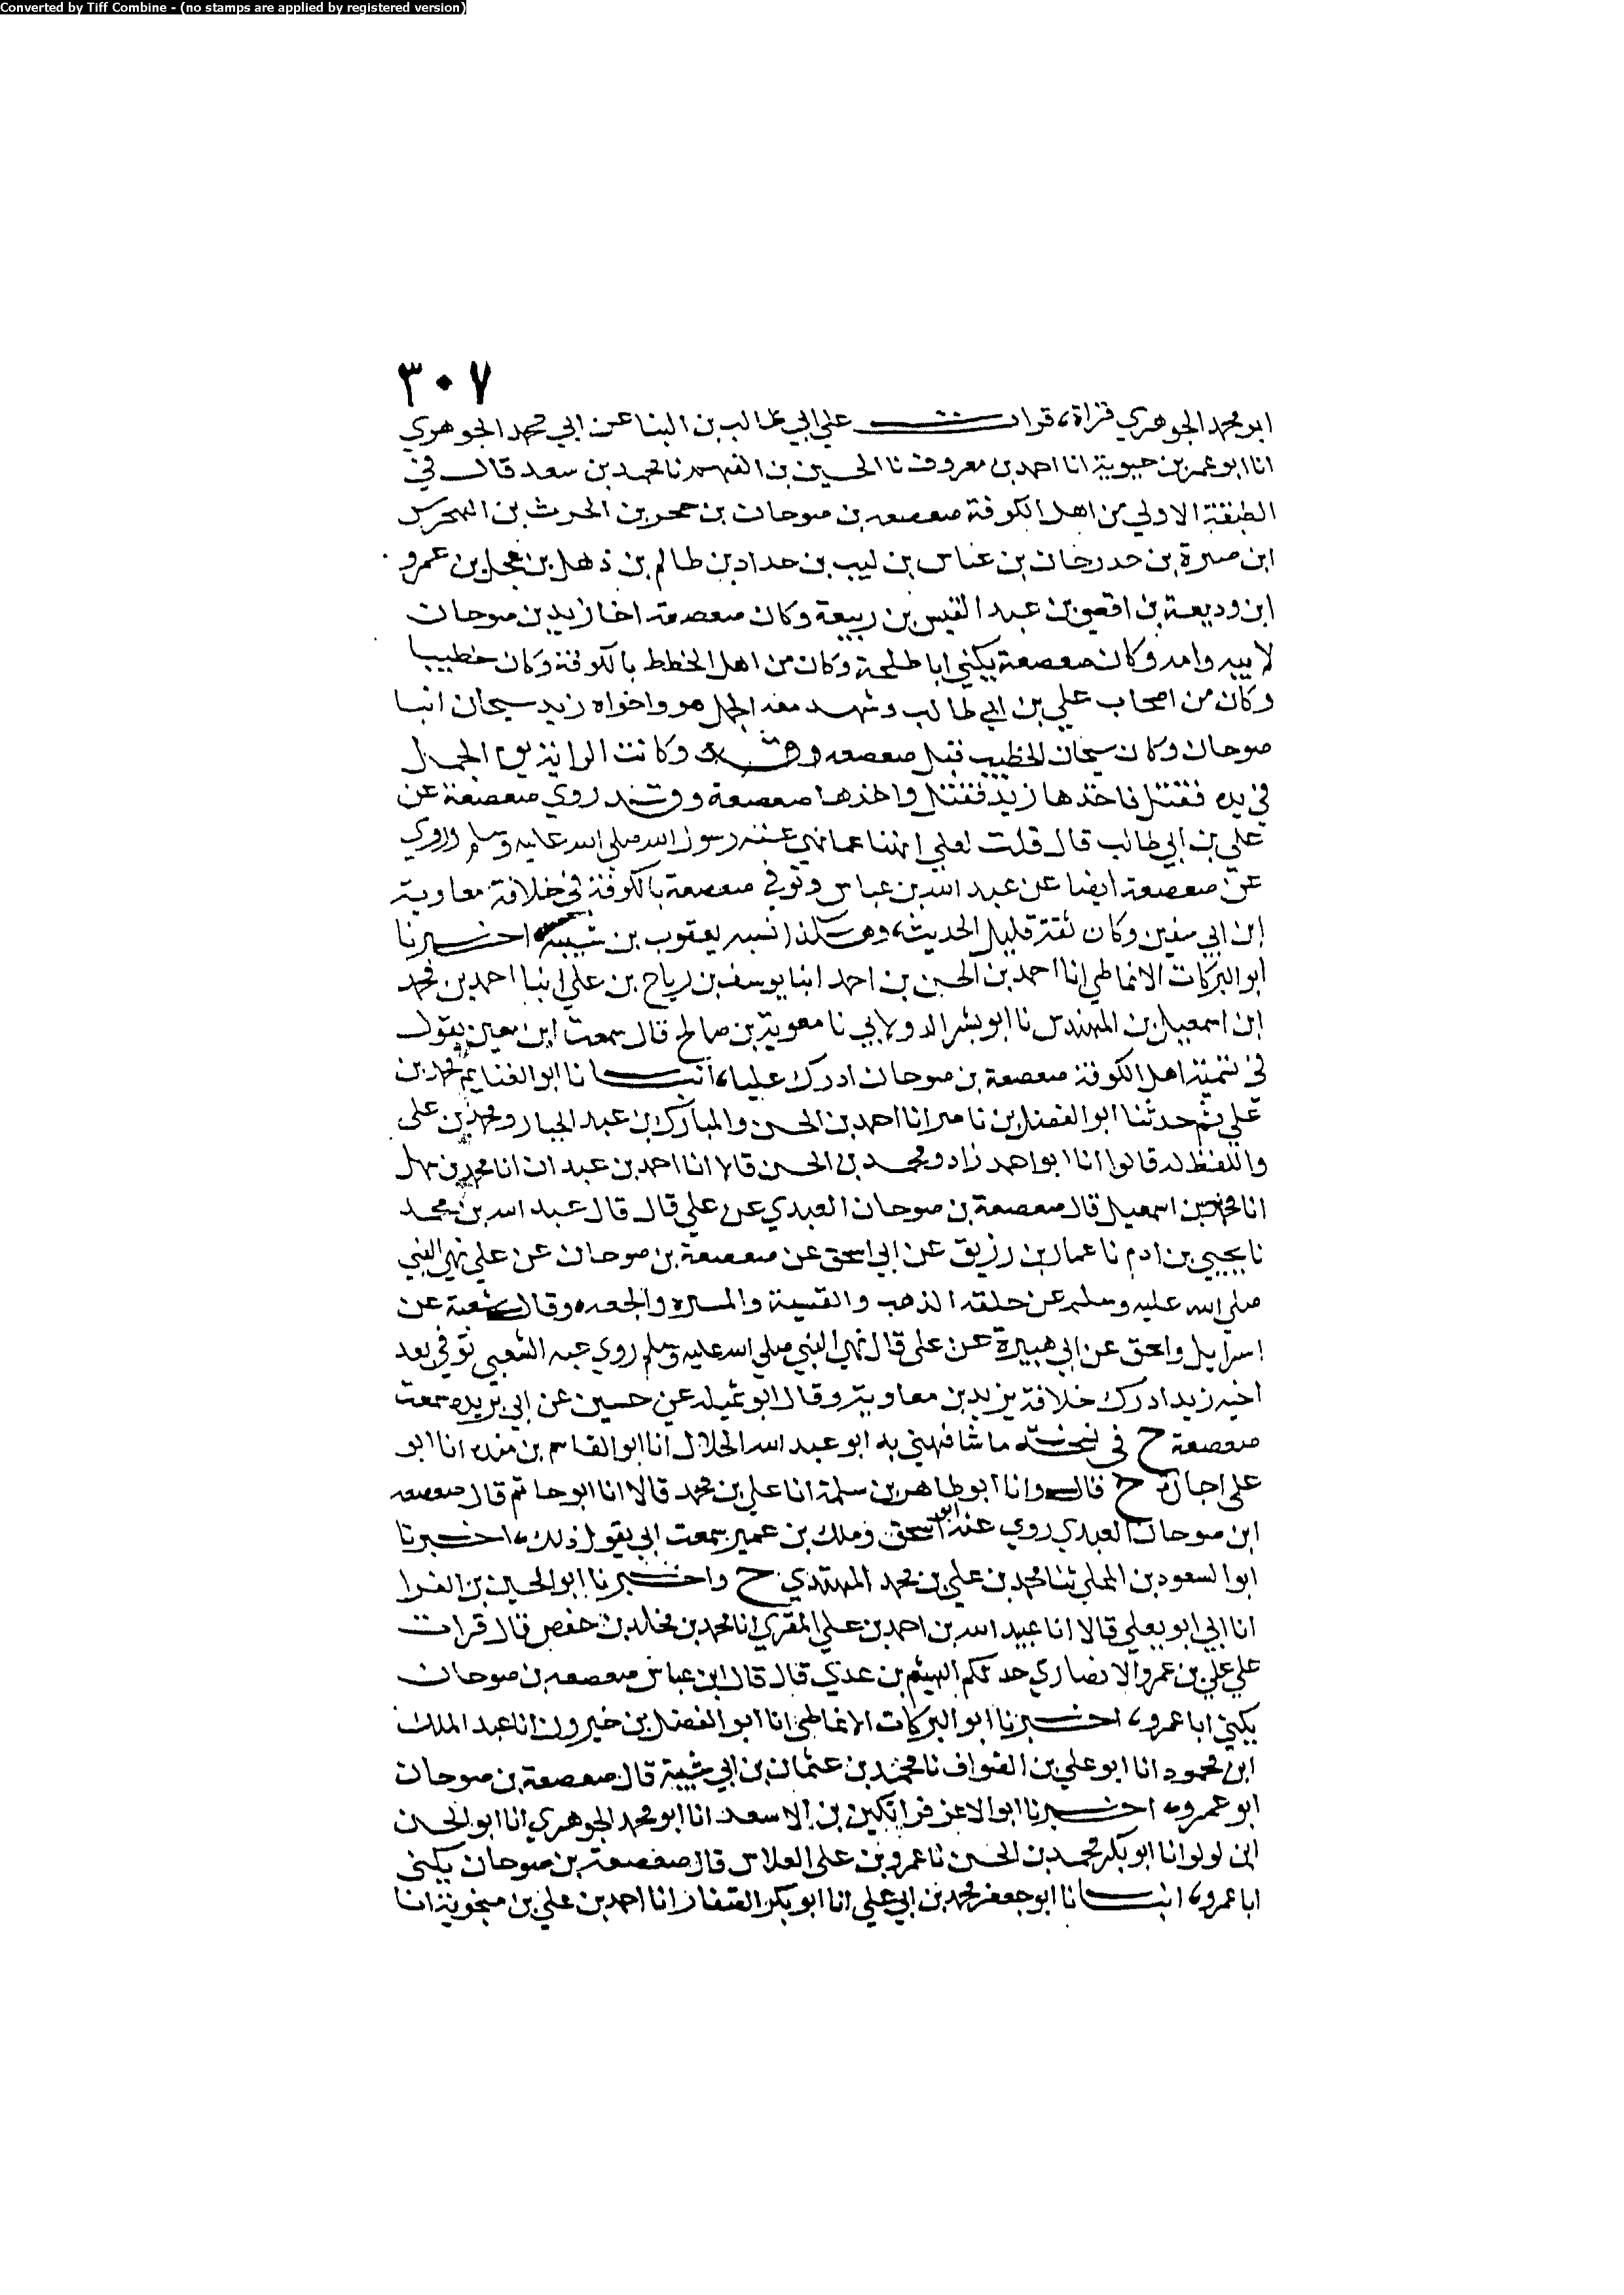 Converted by Tiff Combine - (no stamps are applied by registered version)
٣٠٧
ابو محمد الجوهري قراة، قرات على ابي غالب بن البنا عن ابي محمد الجوهري
انا ابو عمر بن حيوية انا احمد بن معروف نا الحسين بن الفهم نا محمد بن سعد قال في
الطبقة الاولي من اهل الكوفة صعصعه بن صوحان بن حجر بن الحرث بن الهجرس
ابن صبرة بن حدرجان بن عساس بن ليث بن حداد بن ظالم بن ذهل بن عجل بن عمرو
ابن وديعة بن افصي بن عبد القيس بن ربيعة وكان صعصعة اخا زيد بن صوحان
لابيه وامه وكان صعصعة يكني ابا طلحة وكان من اهل الخطط بالكوفة وكان خطيبا
وكان من اصحاب علي بن ابي طالب وشهد معه الجمل هو واخواه زيد سيحان ابنا
صوحان وكان سيحان الخطيب قبل صعصعه وكانت الراية يوم الجمل
في يده فقتل فاخذها زيد فقتل واخذها صعصعة وقد روي صعصعة عن
علي بن ابي طالب قال قلت لعلي انهنا عما نهي عنه رسول الله صلي الله عليه وسلم وروي
عن صعصعة ايضا عن عبد الله بن عباس وتوفي صعصعة بالكوفة في خلافة معاوية
ابن ابي سفين وكان ثقة قليل الحديث، وهكذا نسبه يعقوب بن شيبة اخبرنا
ابو البركات الانماطي انا احمد بن الحسن بن احمد ابنا يوسف بن رباح بن علي ابنا احمد بن محمد
ابن اسمعيل بن المهندس نا ابو بشر الدولابي نا معوية بن صالح قال سمعت ابن معين يقول
في تسمية اهل الكوفة صعصعة بن صوحان ادرك عليا، انبانا ابو الغنايم محمد بن
علي ثم حدثنا ابو الفضل بن ناصر انا احمد بن الحسن والمبارك بن عبد الجبار ومحمد بن علي
واللفظ له قالوا انا ابو احمد زاد ومحمد بن الحسن قالا انا احمد بن عبدان انا محمد بن سهل
انا محمد بن اسمعيل قال صعصعة بن صوحان العبدي عن علي قال قال عبد الله بن محمد
نا يحيي بن ادم نا عمار بن رزيق عن ابي اسحق عن صعصعة بن صوحان عن علي نهي النبي
صلي الله عليه وسلم عن حلقه الذهب والقسية والميسره والجعه وقال شعبة عن
اسرايل واسحق عن ابي هبيرة عن علي قال نهي النبي صلي الله عليه وسلم روي عنه الشعبي توفي بعد
اخيه زيد ادرك خلافة يزيد بن معاوية وقال ابو تميله عن حسين عن ابي بريده سمعت
صعصعة ح في نسخة ما شافهني به ابو عبد الله الخلال انا ابو القاسم بن منده انا ابو
علي اجازة ح قال وانا ابو طاهر بن سلمة انا علي بن محمد قالا انا ابو حاتم قال صعصعه
ابن صوحان العبدي روي عنه ابو اسحق وملك بن عمير سمعت ابي يقول ذلك، اخبرنا
ابو السعود بن المجلي ثنا محمد بن علي بن محمد المهتدي ح واخبرنا ابو الحسين بن الفرا
انا ابي ابو يعلي قالا انا عبيد الله بن احمد بن علي المقري انا محمد بن مخلد بن حفص قال قرات
علي علي بن عمرو الانصاري حدثكم الهيثم بن عدي قال قال ابن عباس صعصعه بن صوحان
يكني ابا عمرو، اخبرنا ابو البركات الانماطي انا ابو الفضل بن خيرون انا عبد الملك
ابن محمود انا ابو علي بن الصواف نا محمد بن عثمان بن ابي شيبة قال صعصعة بن صوحان
ابو عمرو، اخبرنا ابو الاعز قراتكين بن الاسعد انا ابو محمد الجوهري انا ابو الحسن
ابن لولو انا ابو بكر محمد بن الحسن نا عمرو بن علي الفلاس قال صعصعة بن صوحان يكني
ابا عمرو، انبانا ابو جعفر محمد بن ابي علي انا ابو بكر الصفار انا احمد بن علي بن منجوية انا